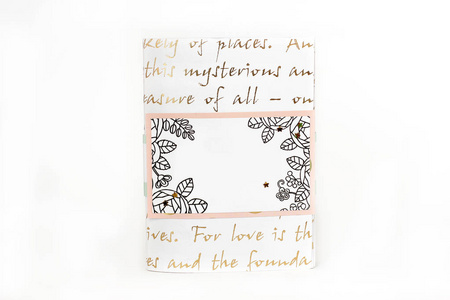 kely of places. An
this mysterious an
asure of all – on
ives. For love is th
es and the founda